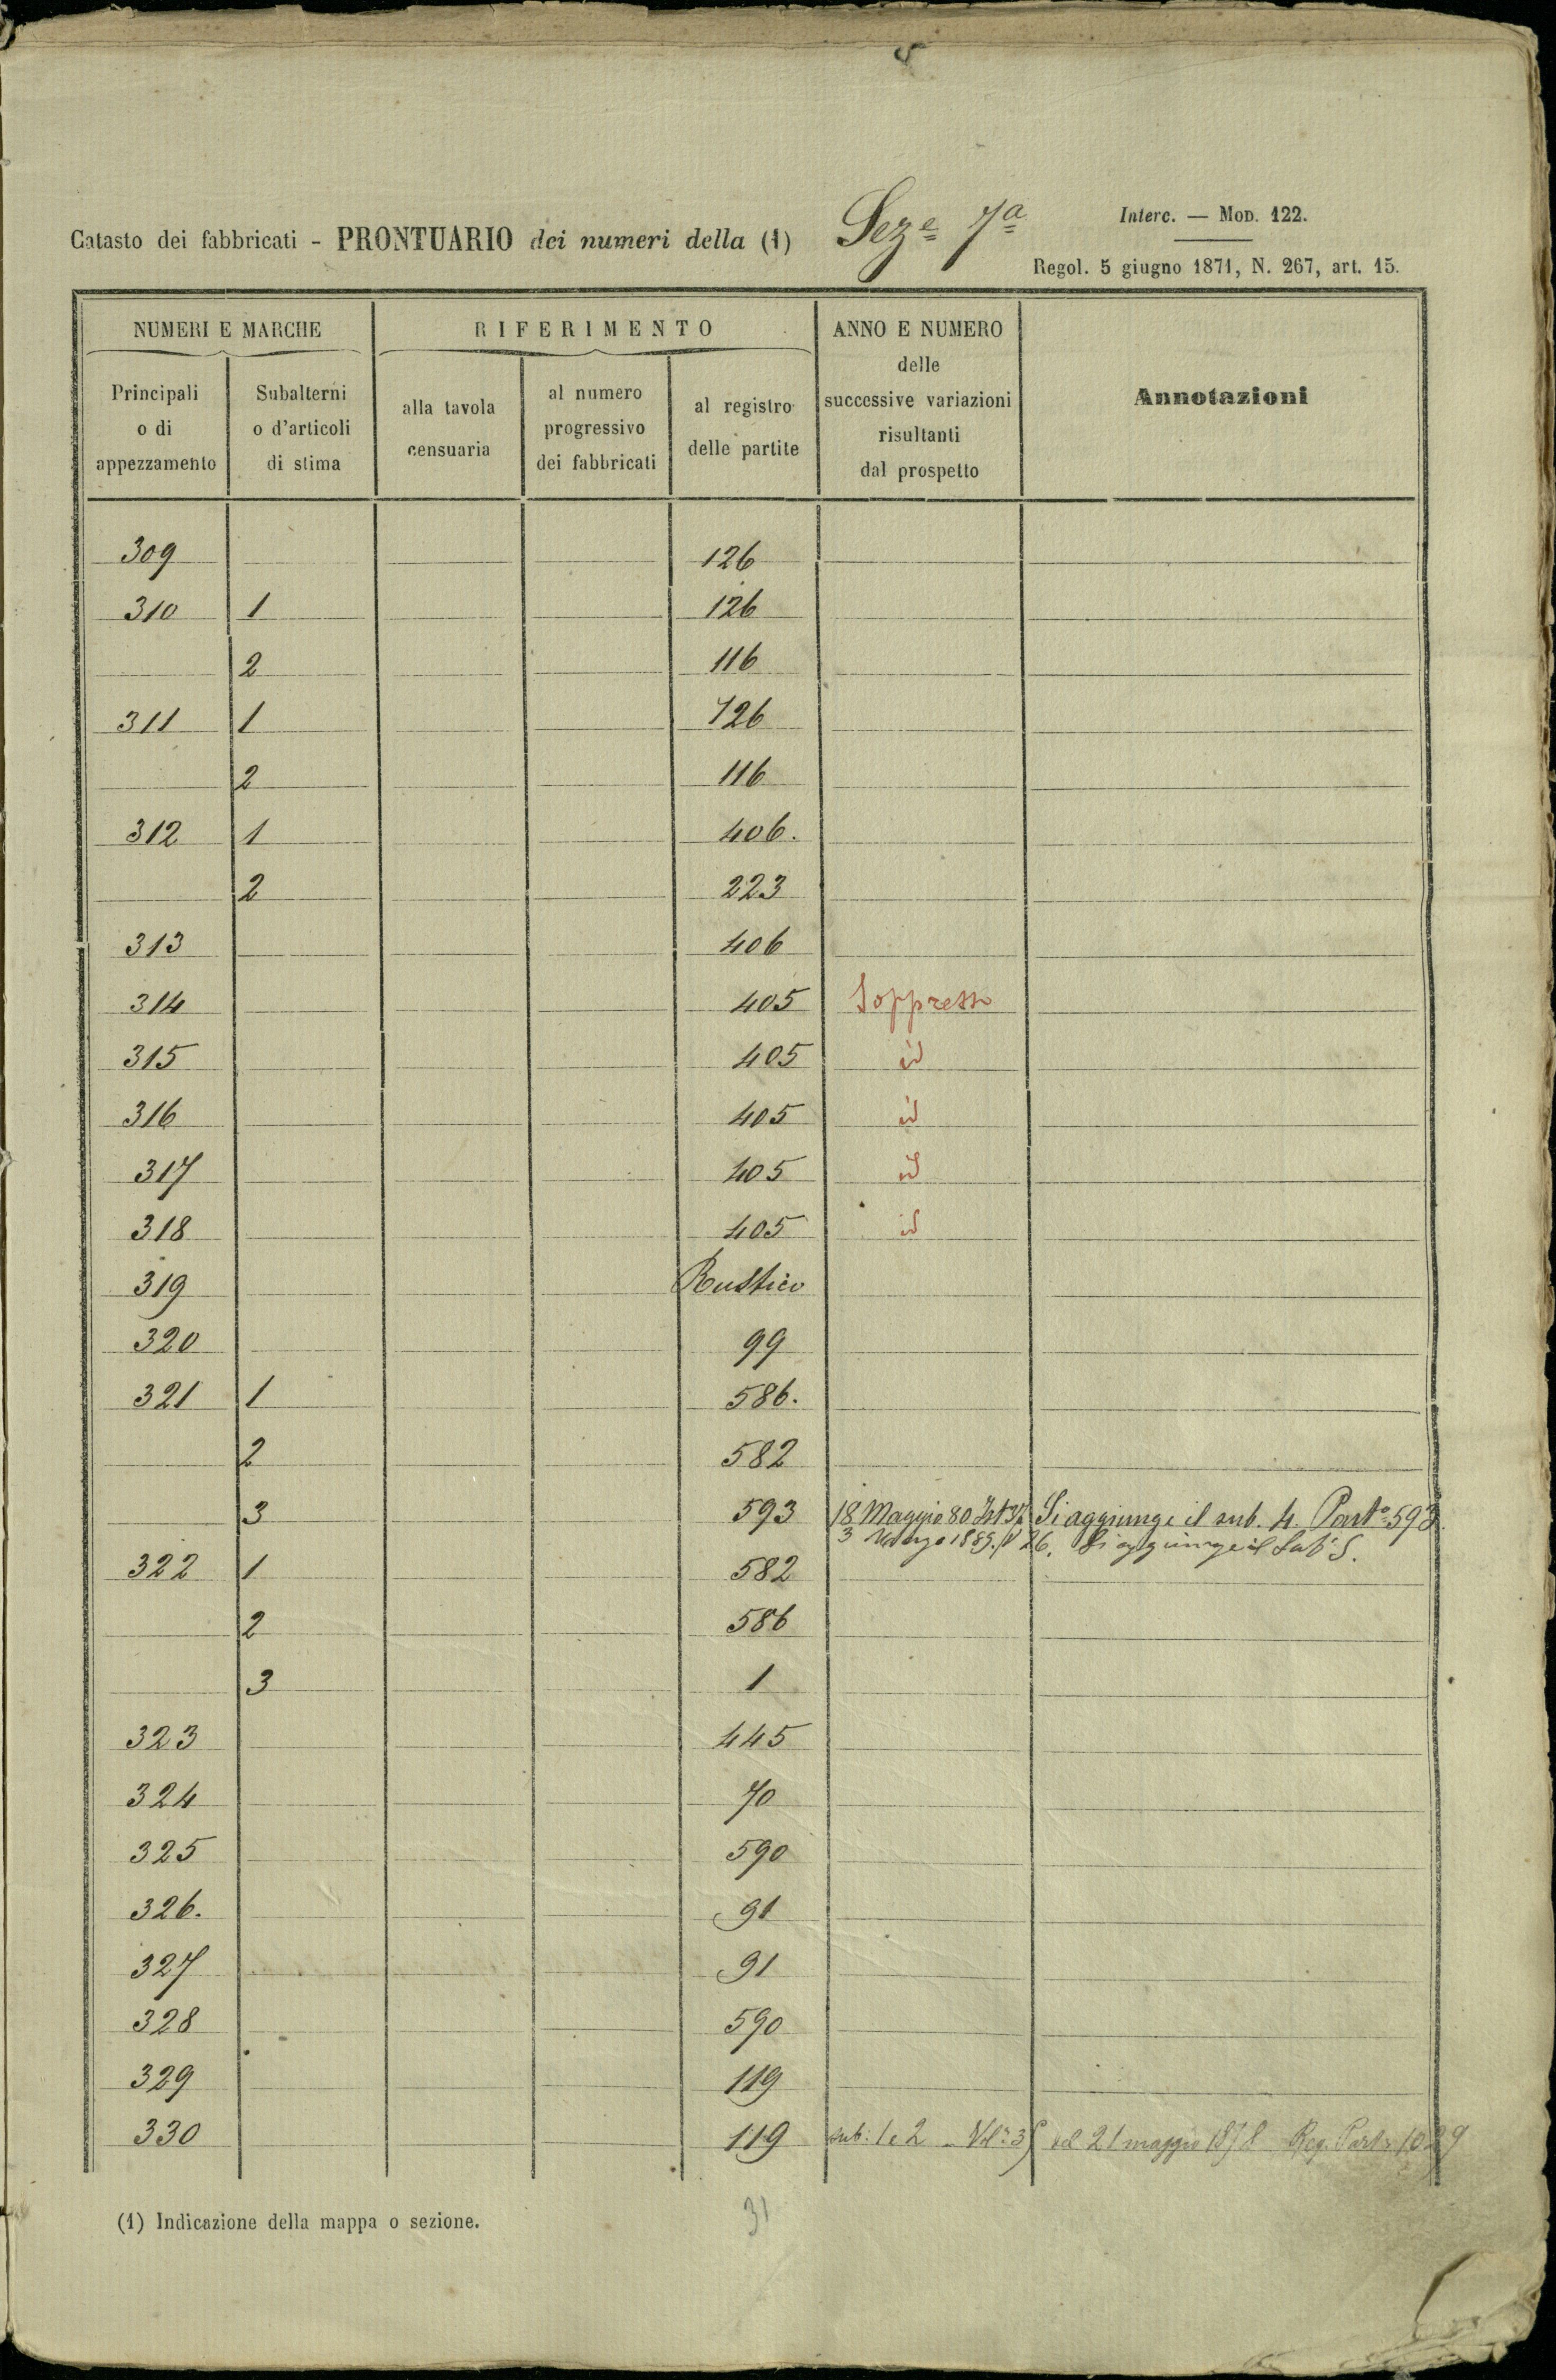 Catasto dei fabbricati - PRONTUARIO dei numeri della (1) Seze 7a
Interc. — Mod. 122.
Regol. 5 giugno 1871, N. 267, art. 15.
NUMERI E MARCHE
Principali
o di
appezzamento
Subalterni
o d'articoli
di stima
RIFERIMENTO
alla tavola
censuaria
al numero
progressivo
dei fabbricati
al registro
delle partite
ANNO E NUMERO
delle
successive variazioni
risultanti
dal prospetto
Annotazioni
309 126
310 1 126
2 116
311 1 126
2 116
312 1 406.
2 223
313 406
314 405 Soppresso
315 405 id
316 405 id
317 405 id
318 405 id
319 Rustico
320 99
321 1 586.
2 582
3 593 18 Maggio 80 Si aggiunge il sub. 4. Parta 593.
3 Marzo 1889. N 26. Si aggiunge il Sub. 5.
322 1 582
2 586
3 1
323 445
324 70
325 590
326. 91
327 91
328 590
329 119
330 119 sub: 1 e 2 - Vol: 3 del 21 maggio 1878 Reg. Part. 1029
(1) Indicazione della mappa o sezione.
31